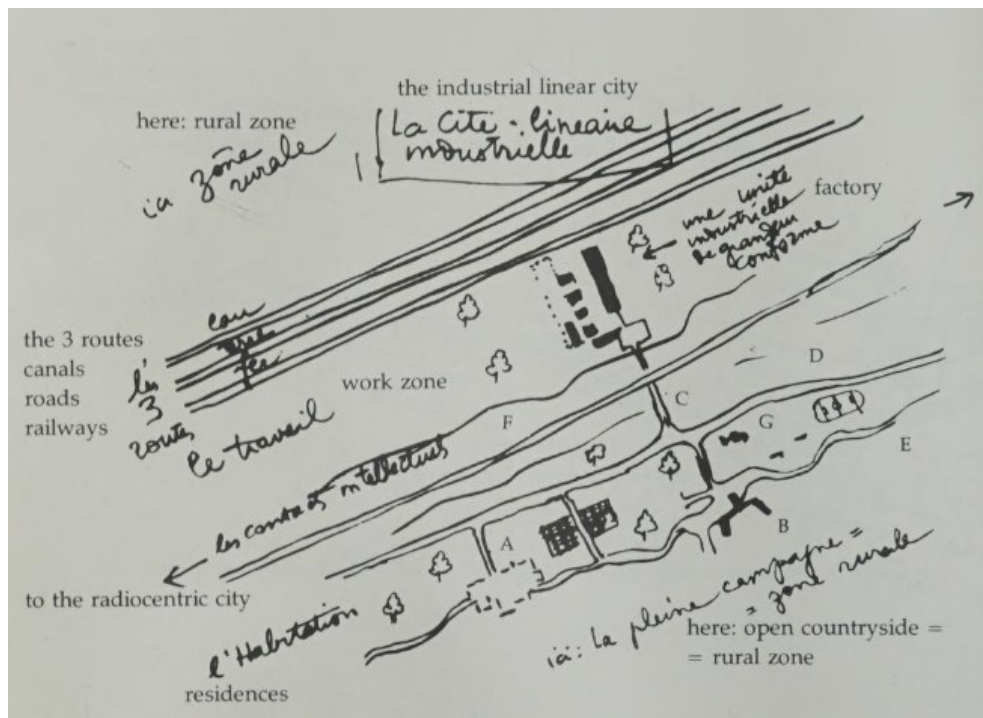 the industrial linear city
here: rural zone
La Cité - linéaire
industrielle
ici zône
rurale
factory
une unité
industrielle
de grandeur
conforme
the 3 routes
canals
roads
railways
eau
fer
les
3
routes
work zone
le travail
D
C
F
G
E
les contacts intellectuels
A
B
to the radiocentric city
l'Habitation
residences
ici: La pleine campagne =
= zone rurale
here: open countryside =
= rural zone